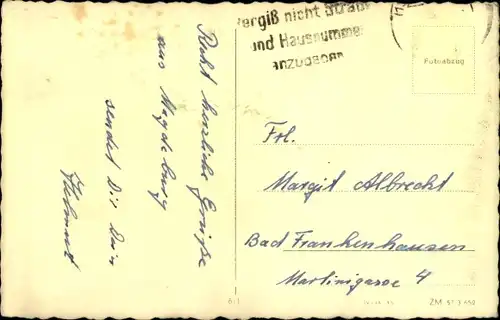 Vergiß nicht Straße
und Hausnummer
anzugeben
Fotoabzug
Recht herzliche Grüße
aus Magdeburg
sendet Dir Dein
Helmut
Frl.
Margit Albrecht
Bad Frankenhausen
Martinigasse 4
6/1